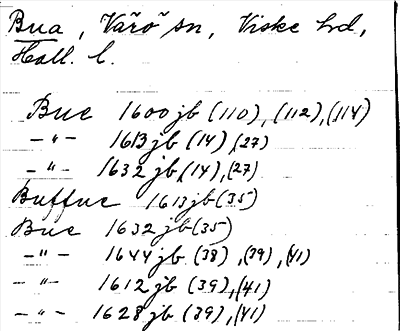 Bua, Värö sn, Viske hd,
Hall. l.
Bue 1600 jb (110), (112), (114)
—"— 1613 jb (14), (27)
—"— 1632 jb, (14), (27)
Buffue 1613 jb (35)
Bue 1632 jb (35)
—"— 1644 jb (38), (39), (41)
—"— 1612 jb (39), (41)
—"— 1628 jb (39), (41)